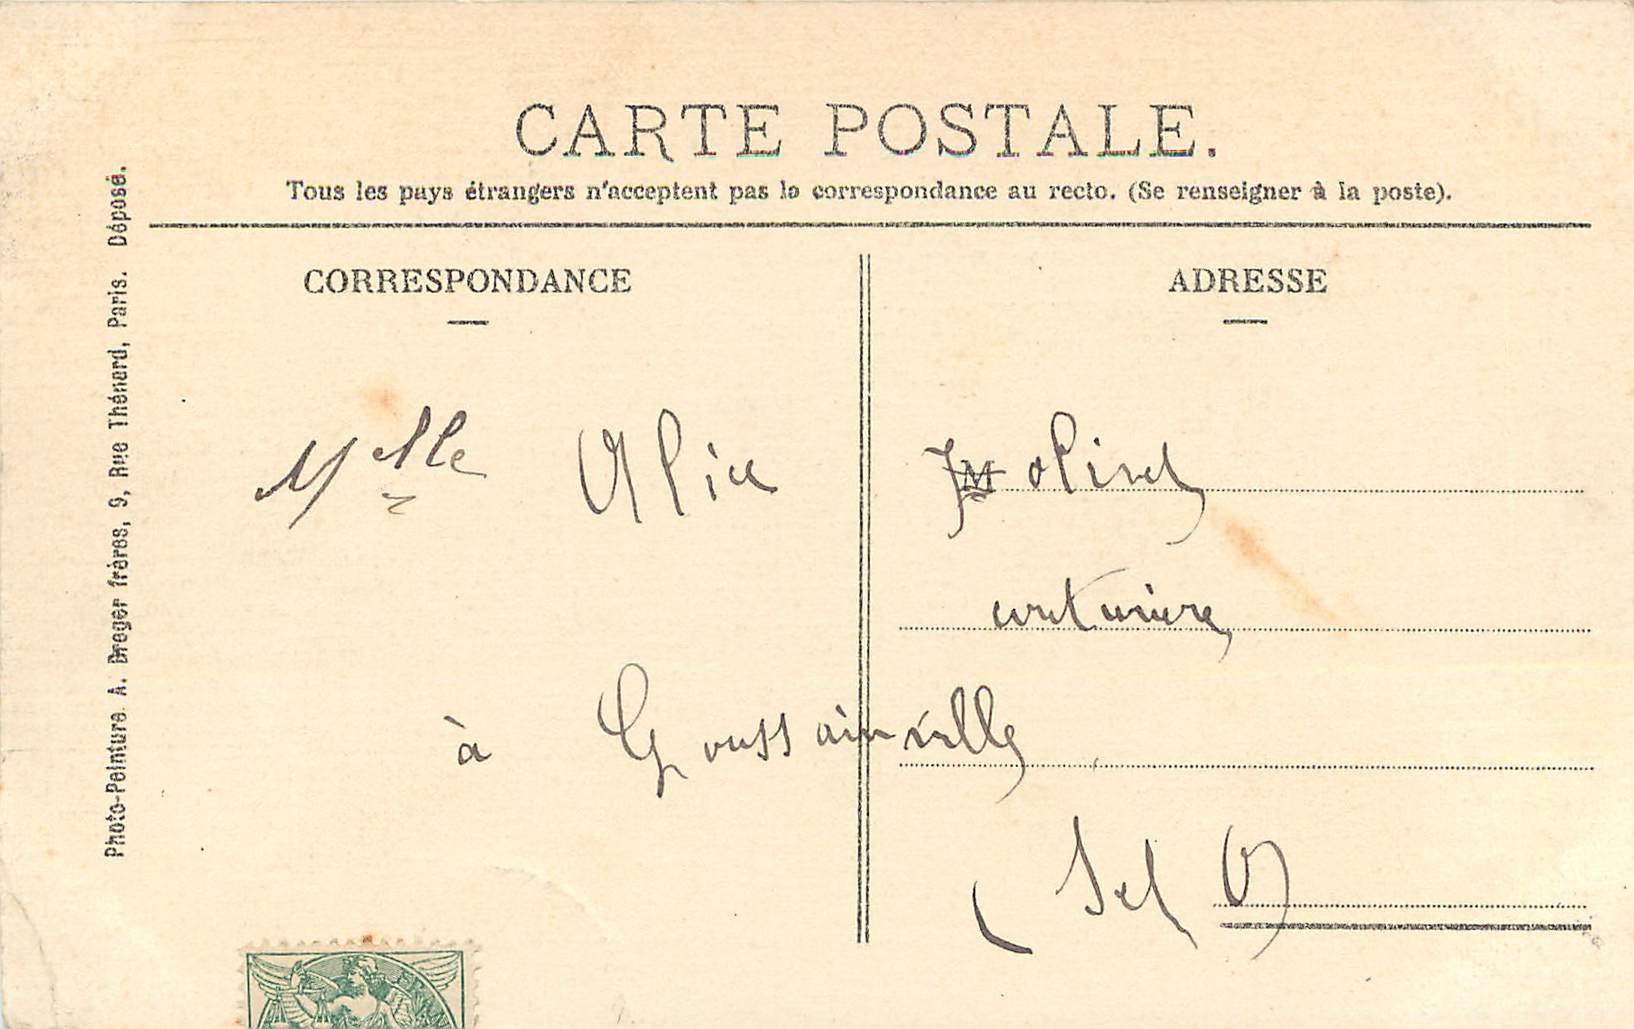 CARTE POSTALE.
Tous les pays étrangers n'acceptent pas la correspondance au recto. (Se renseigner à la poste).
CORRESPONDANCE
ADRESSE
Melle Alice Jolivet
couturière
à Goussainville
(S et O)
Photo-Peinture. A. Dreger frères, 9, Rue Thénard, Paris. Déposé.
FRAN